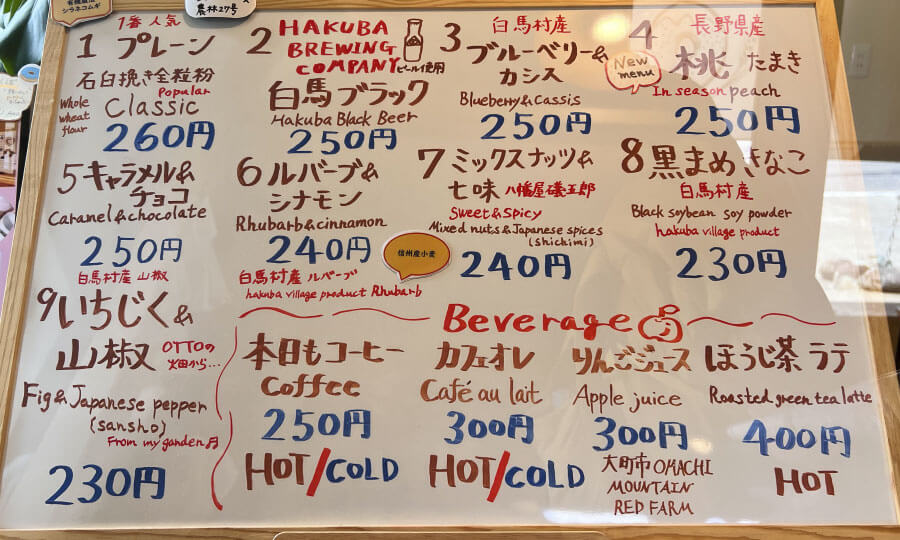 有機栽培
シラネコムギ
農林27号
1番人気
1 プレーン
石臼挽き全粒粉
Popular
Whole wheat flour
Classic
260円
2 HAKUBA
BREWING
COMPANY
ビール使用
白馬ブラック
Hakuba Black Beer
250円
白馬村産
3 ブルーベリー&
カシス
Blueberry & Cassis
250円
長野県産
4 桃 たまき
New menu
In season peach
250円
5 キャラメル&
チョコ
Caramel & chocolate
250円
6 ルバーブ&
シナモン
Rhubarb & cinnamon
240円
白馬村産 ルバーブ
hakuba village product Rhubarb
信州産小麦
7 ミックスナッツ&
七味 八幡屋礒五郎
Sweet & Spicy
Mixed nuts & Japanese spices
(shichimi)
240円
8 黒まめきなこ
白馬村産
Black soybean soy powder
hakuba village product
230円
白馬村産 山椒
9 いちじく&
山椒 OTTOの
畑から...
Fig & Japanese pepper
(sansho)
From my garden♬
230円
Beverage
本日もコーヒー
Coffee
250円
HOT/COLD
カフェオレ
Café au lait
300円
HOT/COLD
りんごジュース
Apple juice
300円
大町市 OMACHI
MOUNTAIN
RED FARM
ほうじ茶 ラテ
Roasted green tea latte
400円
HOT